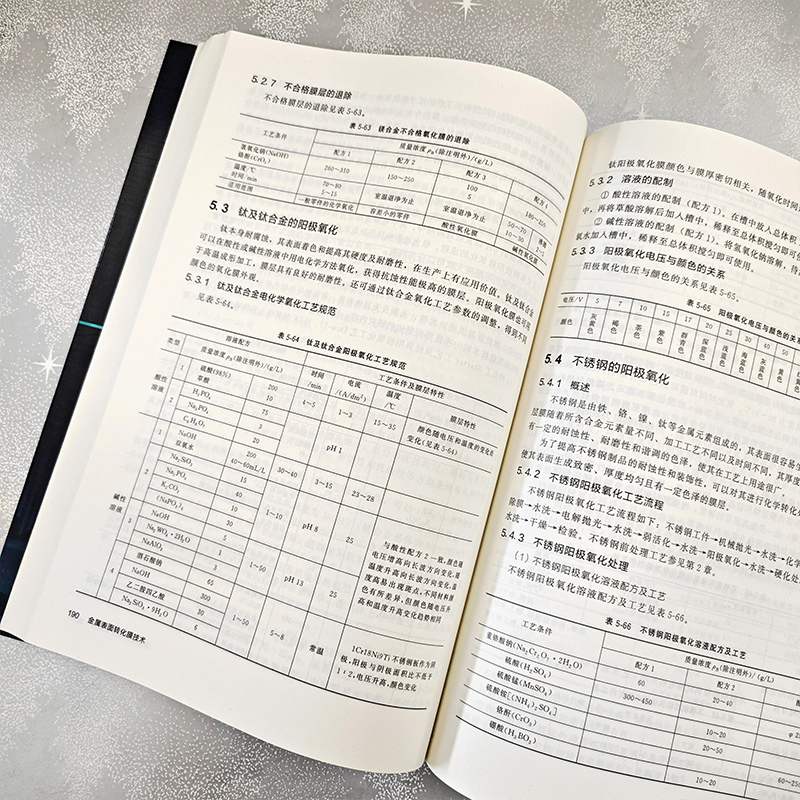 5.2.7 不合格膜层的退除
不合格膜层的退除见表5-63。
表5-63 镁合金不合格氧化膜的退除
工艺条件 质量浓度ρB(除注明外)/(g/L)
配方1 配方2 配方3 配方4
氢氧化钠(NaOH) 260~310
铬酐(CrO3) 150~250 100 180~250
5
温度/℃ 70~80 室温 室温 50~70 沸腾
时间/min 5~15 退净为止 退净为止 10~30 2~5
适用范围 一般零件的化学氧化 容差小的零件 酸性氧化膜 碱性氧化膜
5.3 钛及钛合金的阳极氧化
钛本身耐腐蚀，其表面着色和提高其硬度及耐磨性，在生产上有应用价值。钛及钛合金
可以在酸性或碱性溶液中用电化学方法氧化，获得抗蚀性能极高的膜层。阳极氧化膜也可用
于高温成形加工，膜层具有良好的耐磨性。还可通过钛合金氧化工艺参数的调整，得到不同
颜色的氧化膜外观。
5.3.1 钛及钛合金电化学氧化工艺规范
见表5-64。
表5-64 钛及钛合金阳极氧化工艺规范
类型 溶液配方 工艺条件及膜层特性
质量浓度ρB(除注明外)/(g/L) 时间/min 电流/(A/dm²) 温度/℃ 膜层特性
酸性溶液
1 硫酸(98%) 200
草酸 10
4~5 1~3 15~35 颜色随电压和温度的变化而变化(见表5-64)
2 H3PO4 75
Na3PO4 3
C6H8O7 20
pH 1
碱性溶液
1 NaOH 200
双氧水 40~60mL/L
30~40 3~15 23~28
2 Na2SiO3 15
Na3PO4 40
K2CO3 10
1~10 pH 8 25
与酸性配方2一致，颜色随
电压增高向长波方向变化，随
温度升高向长波方向变化，温
度高易出现斑点，不同材料颜
色有所差异，但颜色随电压升
高和温度升高变化趋势相同
3 (NaPO3)6 40
NaOH 30
Na2WO4·2H2O 5
NaAlO2 1
酒石酸钠 65
1~50 pH 13 25
4 NaOH 300
乙二酸四乙酸 30
Na2SiO3·9H2O 6
1~50 5~8 常温
1Cr18Ni9Ti不锈钢板作为阴
极，阳极与阴极面积比不低于
1∶2，电压升高，颜色变化
190 金属表面转化膜技术
钛阳极氧化膜颜色与膜厚密切相关，随氧化时间
5.3.2 溶液的配制
① 酸性溶液的配制（配方1）。在槽中放入总体积
中，再将草酸溶解后加入槽中，稀释至总体积搅匀即可使
② 碱性溶液的配制（配方1）。将氢氧化钠溶解，待
氧水加入槽中，稀释至总体积搅匀即可使用。
5.3.3 阳极氧化电压与颜色的关系
阳极氧化电压与颜色的关系见表5-65。
表5-65 阳极氧化电压与颜色的关系
电压/V 5 7 10 15 17 20 25 30 40 50
颜色 灰黄色 褐色 茶色 紫色 群青色 深蓝色 浅蓝色 海蓝色 灰蓝色 黄色
5.4 不锈钢的阳极氧化
5.4.1 概述
不锈钢是由铁、铬、镍、钛等金属元素组成的，其表面很容易生
层膜随着所含合金元素量不同、加工工艺不同以及时间不同，其厚度
有一定的耐蚀性、耐磨性和谐调的色泽，使其在工艺上用途很广。
为了提高不锈钢制品的耐蚀性和装饰性，可以对其进行化学转化处
使其表面生成致密、厚度均匀且有一定色泽的膜层。
5.4.2 不锈钢阳极氧化工艺流程
不锈钢阳极氧化工艺流程如下：不锈钢工件→机械抛光→水洗→化学
除膜→水洗→电解抛光→水洗→弱活化→水洗→阳极氧化→水洗→硬化处
水洗→干燥→检验。不锈钢前处理工艺参见第2章。
5.4.3 不锈钢阳极氧化处理
(1) 不锈钢阳极氧化溶液配方及工艺
不锈钢阳极氧化溶液配方及工艺见表5-66。
表5-66 不锈钢阳极氧化溶液配方及工艺
工艺条件 质量浓度ρB(除注明外)/(g/L)
配方1 配方2
重铬酸钠(Na2Cr2O7·2H2O) 60 20~40
硫酸(H2SO4) 300~450
硫酸锰(MnSO4) 10~20
硫酸铵[(NH4)2SO4] 20~50
铬酐(CrO3)
硼酸(H3BO3) 10~20